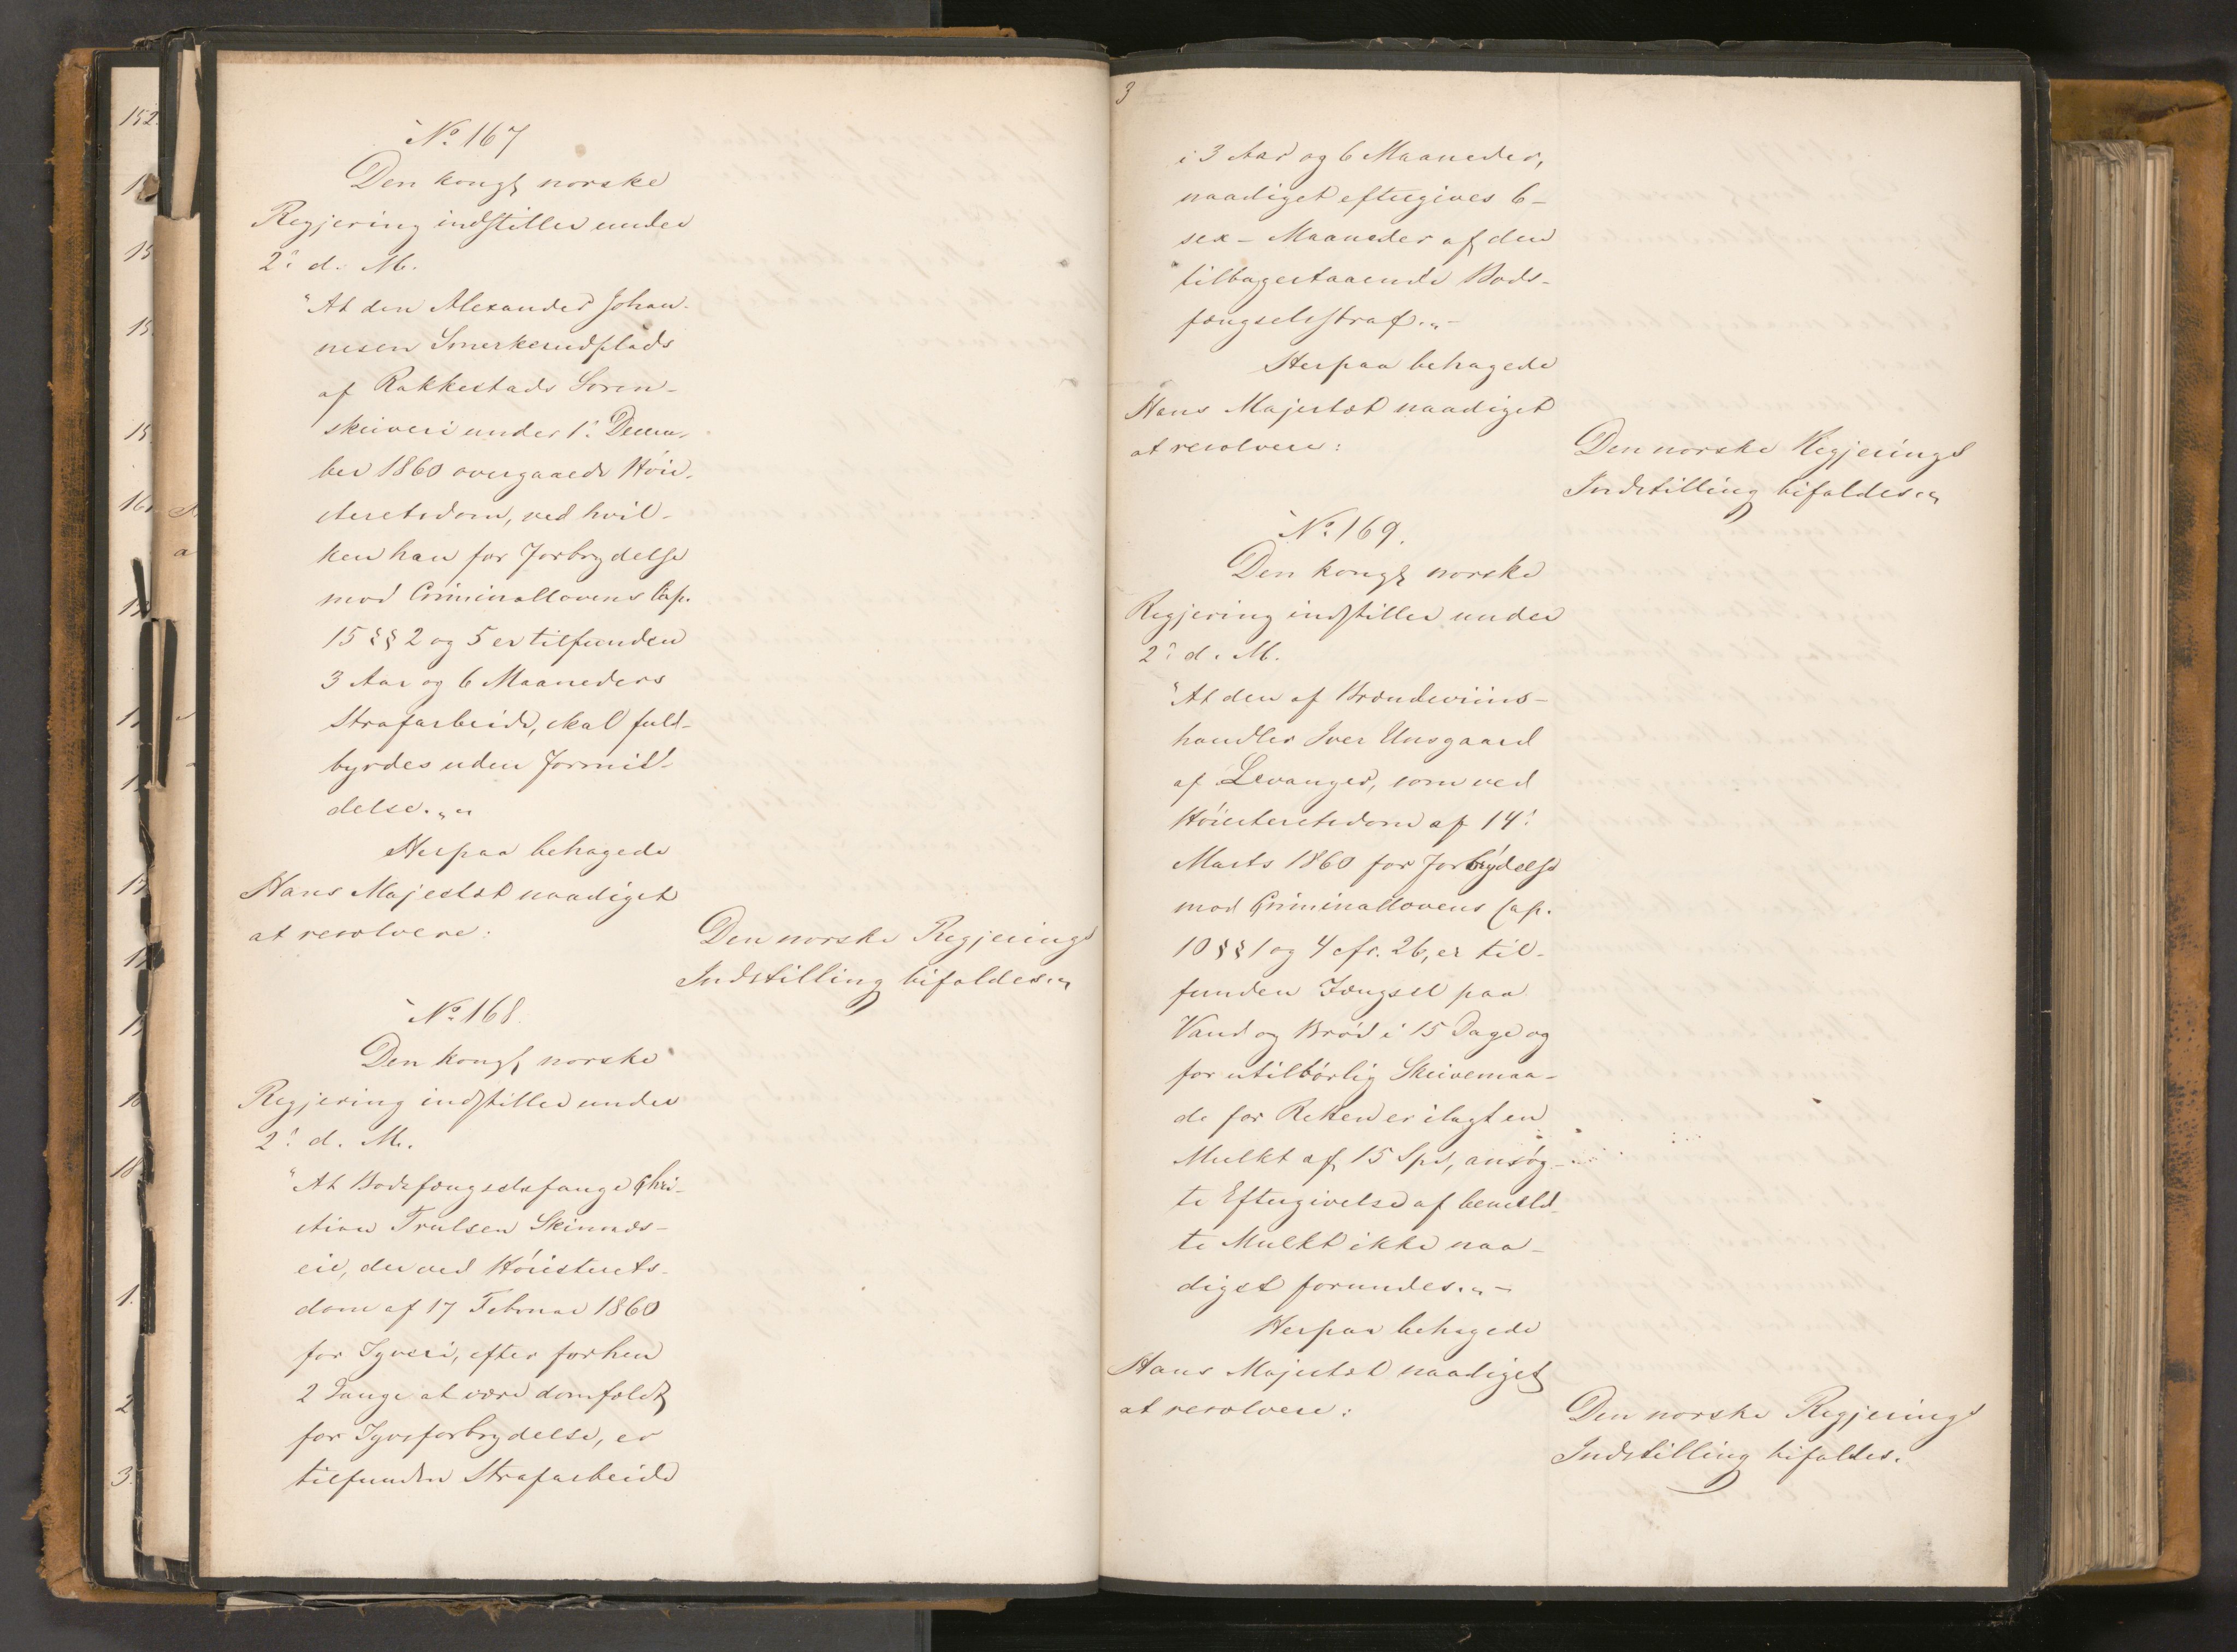 No 167
Den kongl norske
Regjering indstiller under
2. d. M.
"At den Alexander Johan-
nesen Smerkerudplads
af Rakkestads Soren-
skriveri under 1. Decem-
ber 1860 overgaaede Höie-
steretsdom, ved hvil-
ken han for Forbrydelse
mod Criminallovens Cap.
15 §§ 2 og 5 er tilfunden
3 Aar og 6 Maaneders
Strafarbeide, skal fuld-
byrdes uden Formil-
delse."
Herpaa behagede
Hans Majestæt naadigst
at resolvere:
Den norske Regjerings
Indstilling bifaldes."
No 168.
Den kongl norske
Regjering indstiller under
2. d. M.
"At Bodsfængselsfange Chri-
stian Trulsen
eie, der ved Höiesterets-
dom af 17 Februar 1860
for Tyveri, efter forhen
2 Gange at være domfældt
for Tyvsforbrydelse, er
tilfunden Strafarbeide
3
i 3 Aar og 6 Maaneder,
naadigst eftergives 6 -
sex - Maaneder af den
tilbagestaaende Bods-
fængselsstraf." -
Herpaa behagede
Hans Majestæt naadigst
at resolvere:
Den norske Regjerings
Indstilling bifaldes."
No 169.
Den kongl norske
Regjering indstiller under
2. d. M.
"At den af Brændeviins-
handler Iver Unsgaard
af Levanger, som ved
Höiesteretsdom af 14.
Marts 1860 for Forbrydelse
mod Criminallovens Cap.
10 §§ 1 og 4 cfr. 26, er til-
funden Fængsel paa
Vand og Bröd i 15 Dage og
for utilbörlig Skrivemaa-
de for Retten er ilagt en
Mulkt af 15 Spd, ansög-
te Eftergivelse af bemeld-
te Mulkt ikke naa-
digst forundes." -
Herpaa behagede
Hans Majestæt naadigst
at resolvere:
Den norske Regjerings
Indstilling bifaldes.